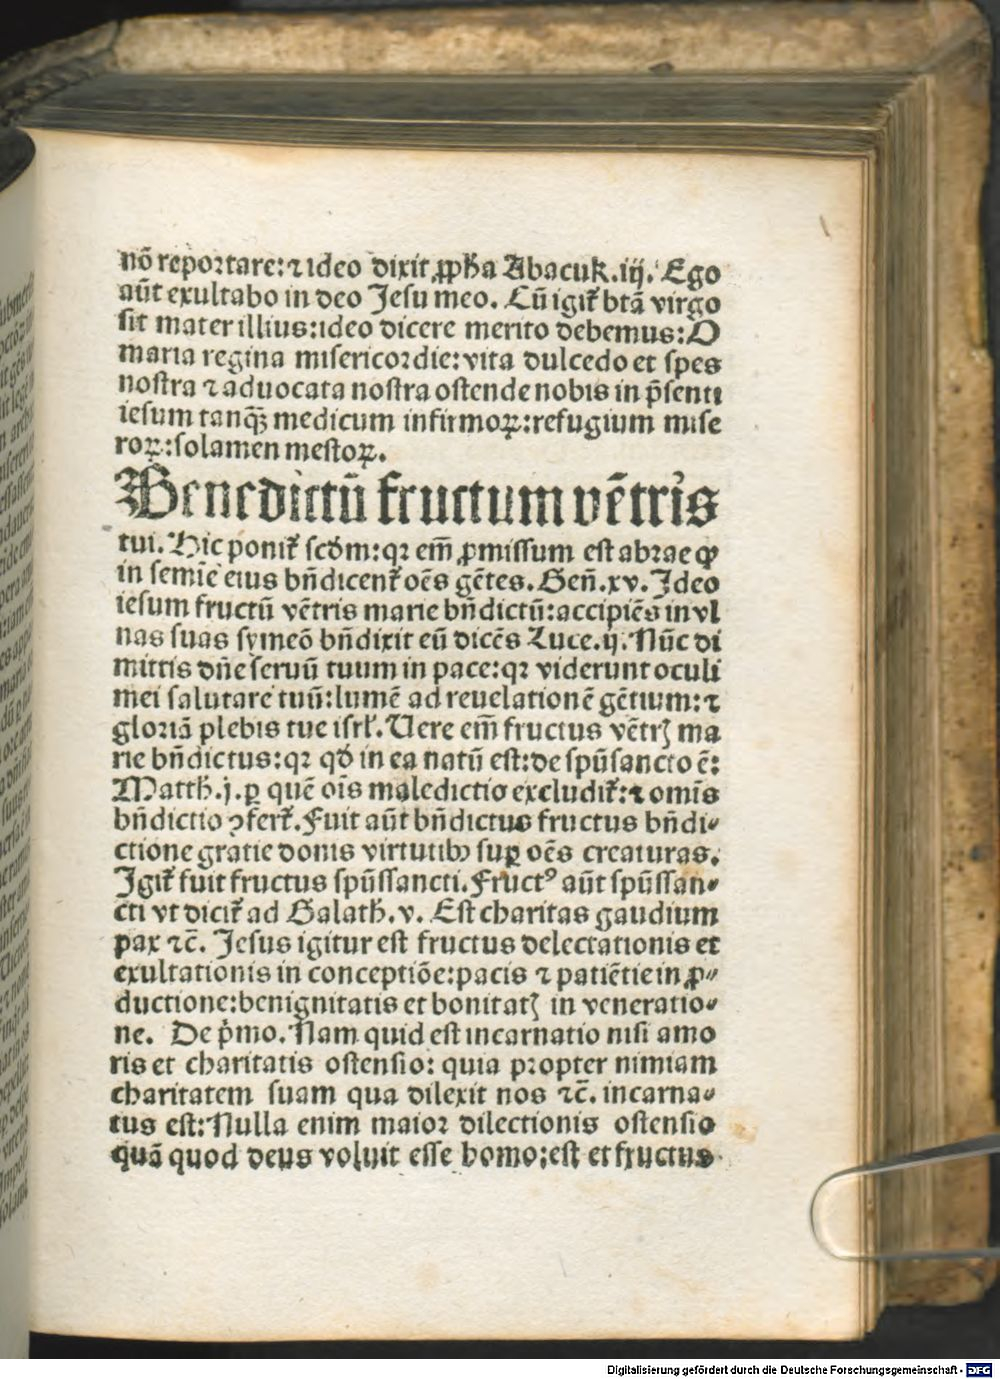 nõ reportare: ⁊ ideo dixit ꝓpħa Abacuk. iij. Ego
aūt exultabo in deo Jesu meo. Cū igit᷑ btā virgo
sit mater illius: ideo dicere merito debemus: O
maria regina misericordie: vita dulcedo et spes
nostra ⁊ aduocata nostra ostende nobis in p̄senti
iesum tanq̄ꝫ medicum infirmoꝝ: refugium mise
roꝝ: solamen mestoꝝ.
Benedictū fructum vētris
tui. Hic ponit᷑ scḋm: qꝛ em̄ ꝓmissum est abrae ꝙ
in semīe eius bn̄dicent᷑ oēs gētes. Gen̄. xv. Ideo
iesum fructū vētris marie bn̄dictū: accipiēs in vl
nas suas symeō bn̄dixit eū dicēs Luce. ij. Nūc di
mittis dn̄e seruū tuum in pace: qꝛ viderunt oculi
mei salutare tuū: lumē ad reuelationē gētium: ⁊
gloriā plebis tue isrł. Uere em̄ fructus vētrꝭ ma
rie bn̄dictus: qꝛ qḋ in ea natū est: de spū sancto ē:
Matth. j. ꝑ quē oīs maledictio excludit᷑: ⁊ omīs
bn̄dictio ꝯfert᷑. Fuit aūt bn̄dictus fructus bn̄di⸗
ctione gratie donis virtutibꝰ suꝑ oēs creaturas.
Igit᷑ fuit fructus spūssancti. Fructꝰ aūt spūssan⸗
cti vt dicit᷑ ad Galath. v. Est charitas gaudium
pax ⁊c̄. Jesus igitur est fructus delectationis et
exultationis in conceptiōe: pacis ⁊ patiētie in ꝓ⸗
ductione: benignitatis et bonitatꝭ in veneratio⸗
ne. De p̍mo. Nam quid est incarnatio nisi amo
ris et charitatis ostensio: quia propter nimiam
charitatem suam qua dilexit nos ⁊c̄. incarna⸗
tus est: Nulla enim maior dilectionis ostensio
quā quod deus voluit esse homo: est et fructus
Digitalisierung gefördert durch die Deutsche Forschungsgemeinschaft - DFG